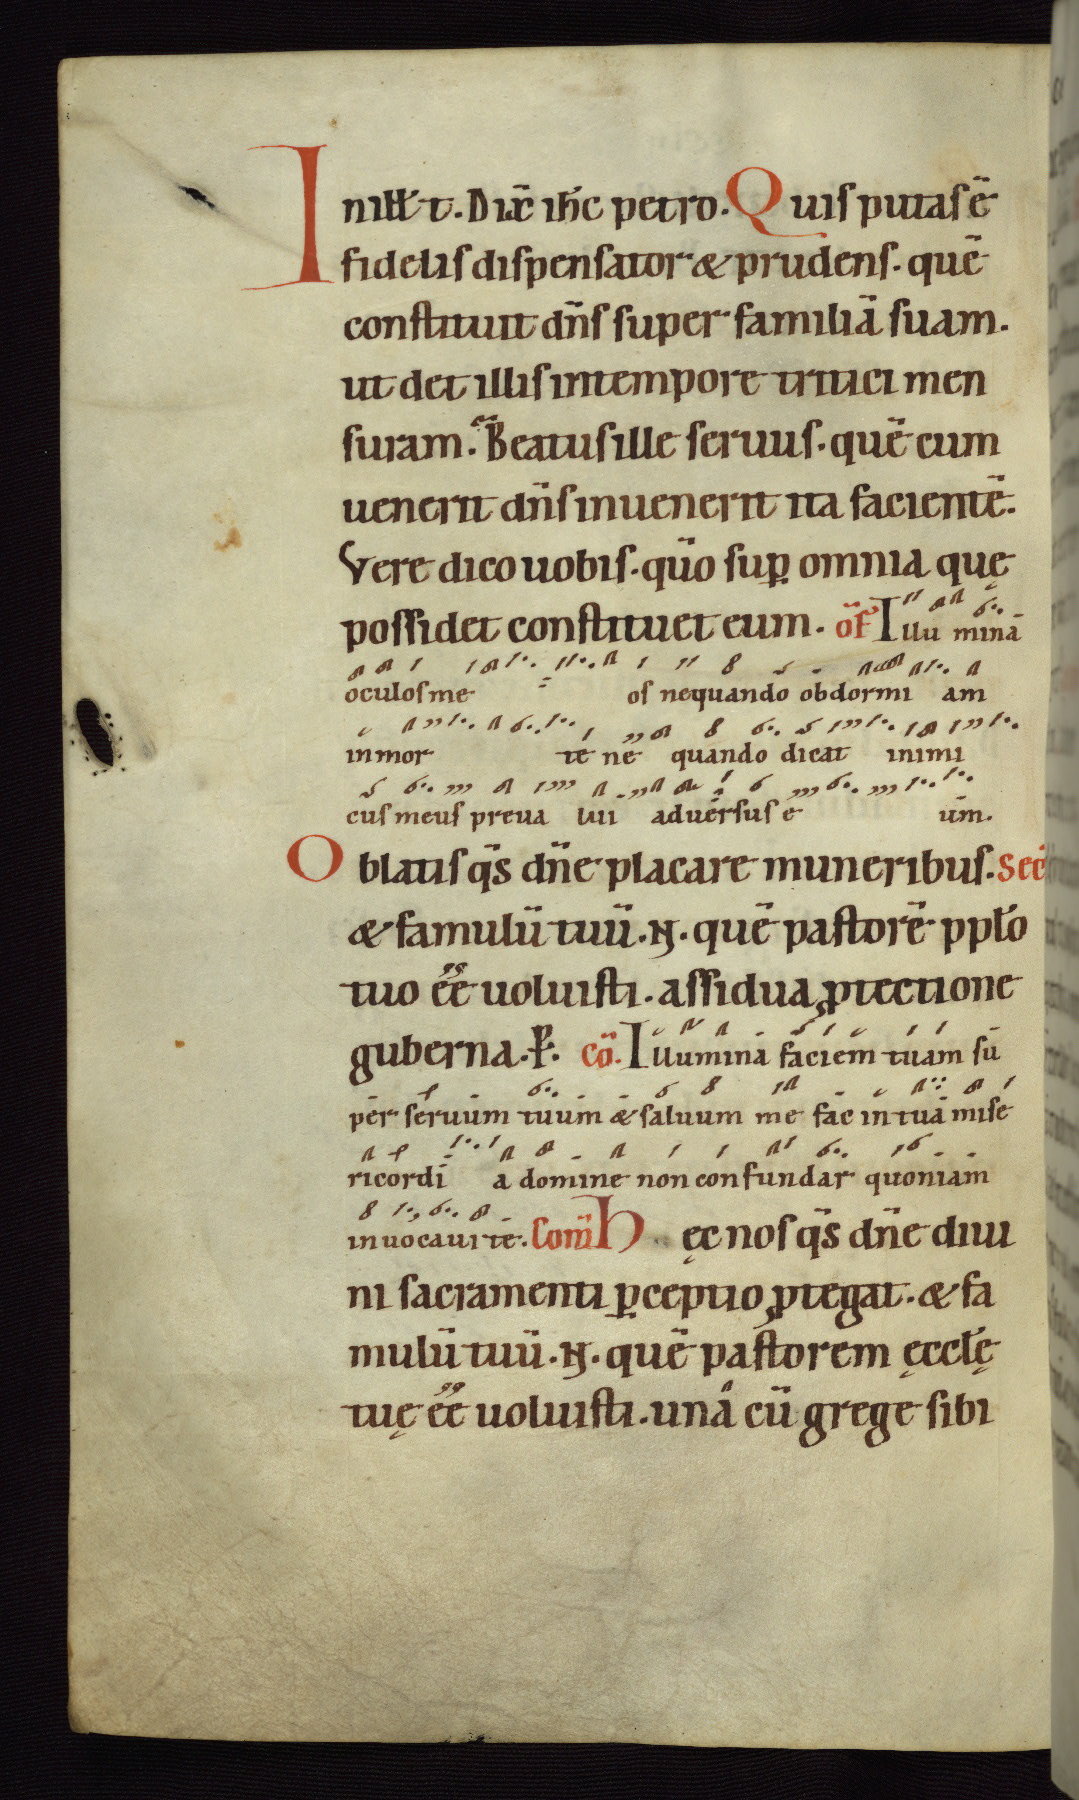 In ill̅ t̅. Dix̅ ih̅c petro. Quis putas e̅
fidelis dispensator & prudens. que̅
constituit dn̅s super familia̅ suam.
ut det illis in tempore tritici men
suram. Beatus ille seruus. que̅ cum
uenerit dn̅s inuenerit ita faciente̅.
Vere dico uobis. qūo sup̲ omnia quę
possidet constituet eum. of̅ Illu mina̅
oculos me os nequando obdormi am
in mor te ne quando dicat inimi
cus meus preua lui aduersus e um.
Oblatis qs̅ dn̅e placare muneribus. Sec̅
& famulu̅ tuu̅ .N. que̅ pastore̅ ppl̅o
tuo ee̅ uoluisti. assidua ꝓtectione
guberna. P̲. co̅. Illumina faciem tuam su
per seruum tuum & saluum me fac in tua̅ mise
ricordi a domine non confundar quoniam
inuocaui te. Com̅ Hęc nos qs̅ dn̅e diui
ni sacramenti ꝑceptio ꝓtegat. & fa
mulu̅ tuu̅ .N. que̅ pastorem ęccl̅ę
tuę ee̅ uoluisti. una̅ cu̅ grege sibi